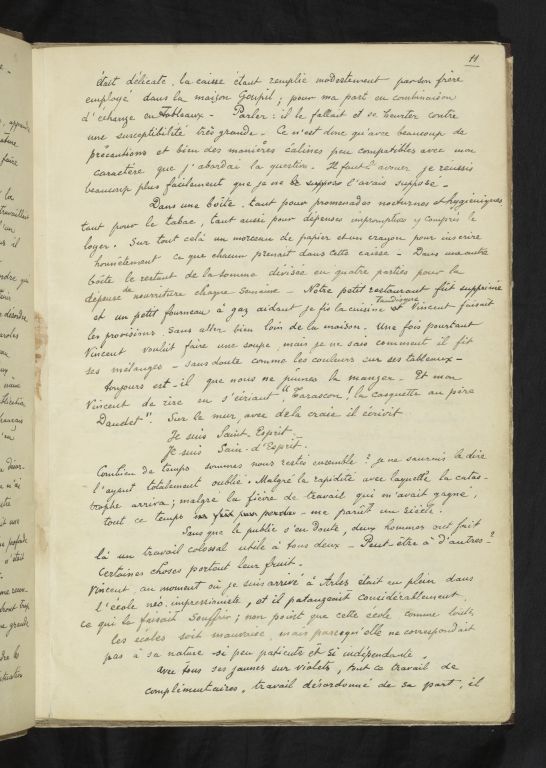 11
était délicate, la caisse étant remplie modestement par son frère
employé dans la maison Goupil ; pour ma part en combinaison
d'échange en tableaux - Parler : il le fallait et se heurter contre
une susceptibilité très grande - Ce n'est donc qu'avec beaucoup de
précautions et bien des manières calines peu compatibles avec mon
caractère que j'abordai la question. Il faut l'avouer je réussis
beaucoup plus facilement que je ne l'avais supposé -
Dans une boîte, tant pour promenades nocturnes et hygiéniques
tant pour le tabac, tant aussi pour dépenses impromptus y compris le
loyer. Sur tout celà un morceau de papier et un crayon pour inscrire
honnêtement ce que chacun prenait dans cette caisse - Dans une autre
boîte le restant de la somme divisée en quatre parties pour la
dépense de nourriture chaque semaine - Notre petit restaurant fût supprimé
et un petit fourneau à gaz aidant je fis la cuisine tandisque Vincent faisait
les provisions, sans aller bien loin de la maison. Une fois pourtant
Vincent voulût faire une soupe, mais je ne sais comment il fit
ses mélanges - sans doute comme les couleurs sur ses tableaux -
toujours est-il que nous ne pûmes la manger - Et mon
Vincent de rire en s'écriant "Tarascon! la casquette au père
Daudet". Sur le mur, avec de la craie il écrivit
Je suis Saint-Esprit.
Je suis Sain-d'Esprit.
Combien de temps sommes nous restés ensemble? je ne saurais le dire
l'ayant totalement oublié. Malgré la rapidité avec laquelle la catas-
trophe arriva; malgré la fièvre de travail qui m'avait gagné,
tout ce temps me parût un siècle.
Sans que le public s'en doute, deux hommes ont fait
là un travail colossal utile à tous deux - Peut-être à d'autres?
Certaines choses portent leur fruit.
Vincent, au moment où je suis arrivé à Arles était en plein dans
l'école néo-impressionniste, et il pataugeait considérablement,
ce qui le faisait souffrir; non point que cette école, comme toutes
les écoles soit mauvaise, mais parcequ'elle ne correspondait
pas à sa nature si peu patiente et si indépendante.
Avec tous ses jaunes sur violets, tout ce travail de
complémentaires, travail désordonné de sa part, il